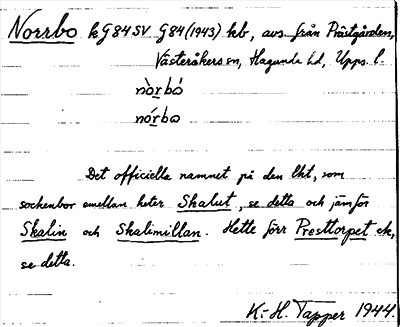 Norrbo kG84SV G84(1943) kb, avs. från Prästgården,
Västeråkers sn, Hagunda hd, Upps. l.
nòrbó
nórbo
Det officiella namnet på den lht, som
sockenbor emellan heter Skalut, se detta och jämför
Skalin och Skalimillan. Hette förr Presttorpet ek,
se detta.
K.-H. Tapper 1944.